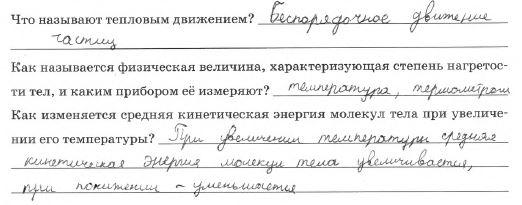 Что называют тепловым движением? Беспорядочное движение
частиц
Как называется физическая величина, характеризующая степень нагретос-
ти тел, и каким прибором её измеряют? температура, термометром
Как изменяется средняя кинетическая энергия молекул тела при увеличе-
нии его температуры? При увеличении температуры средняя
кинетическая энергия молекул тела увеличивается,
при понижении - уменьшается